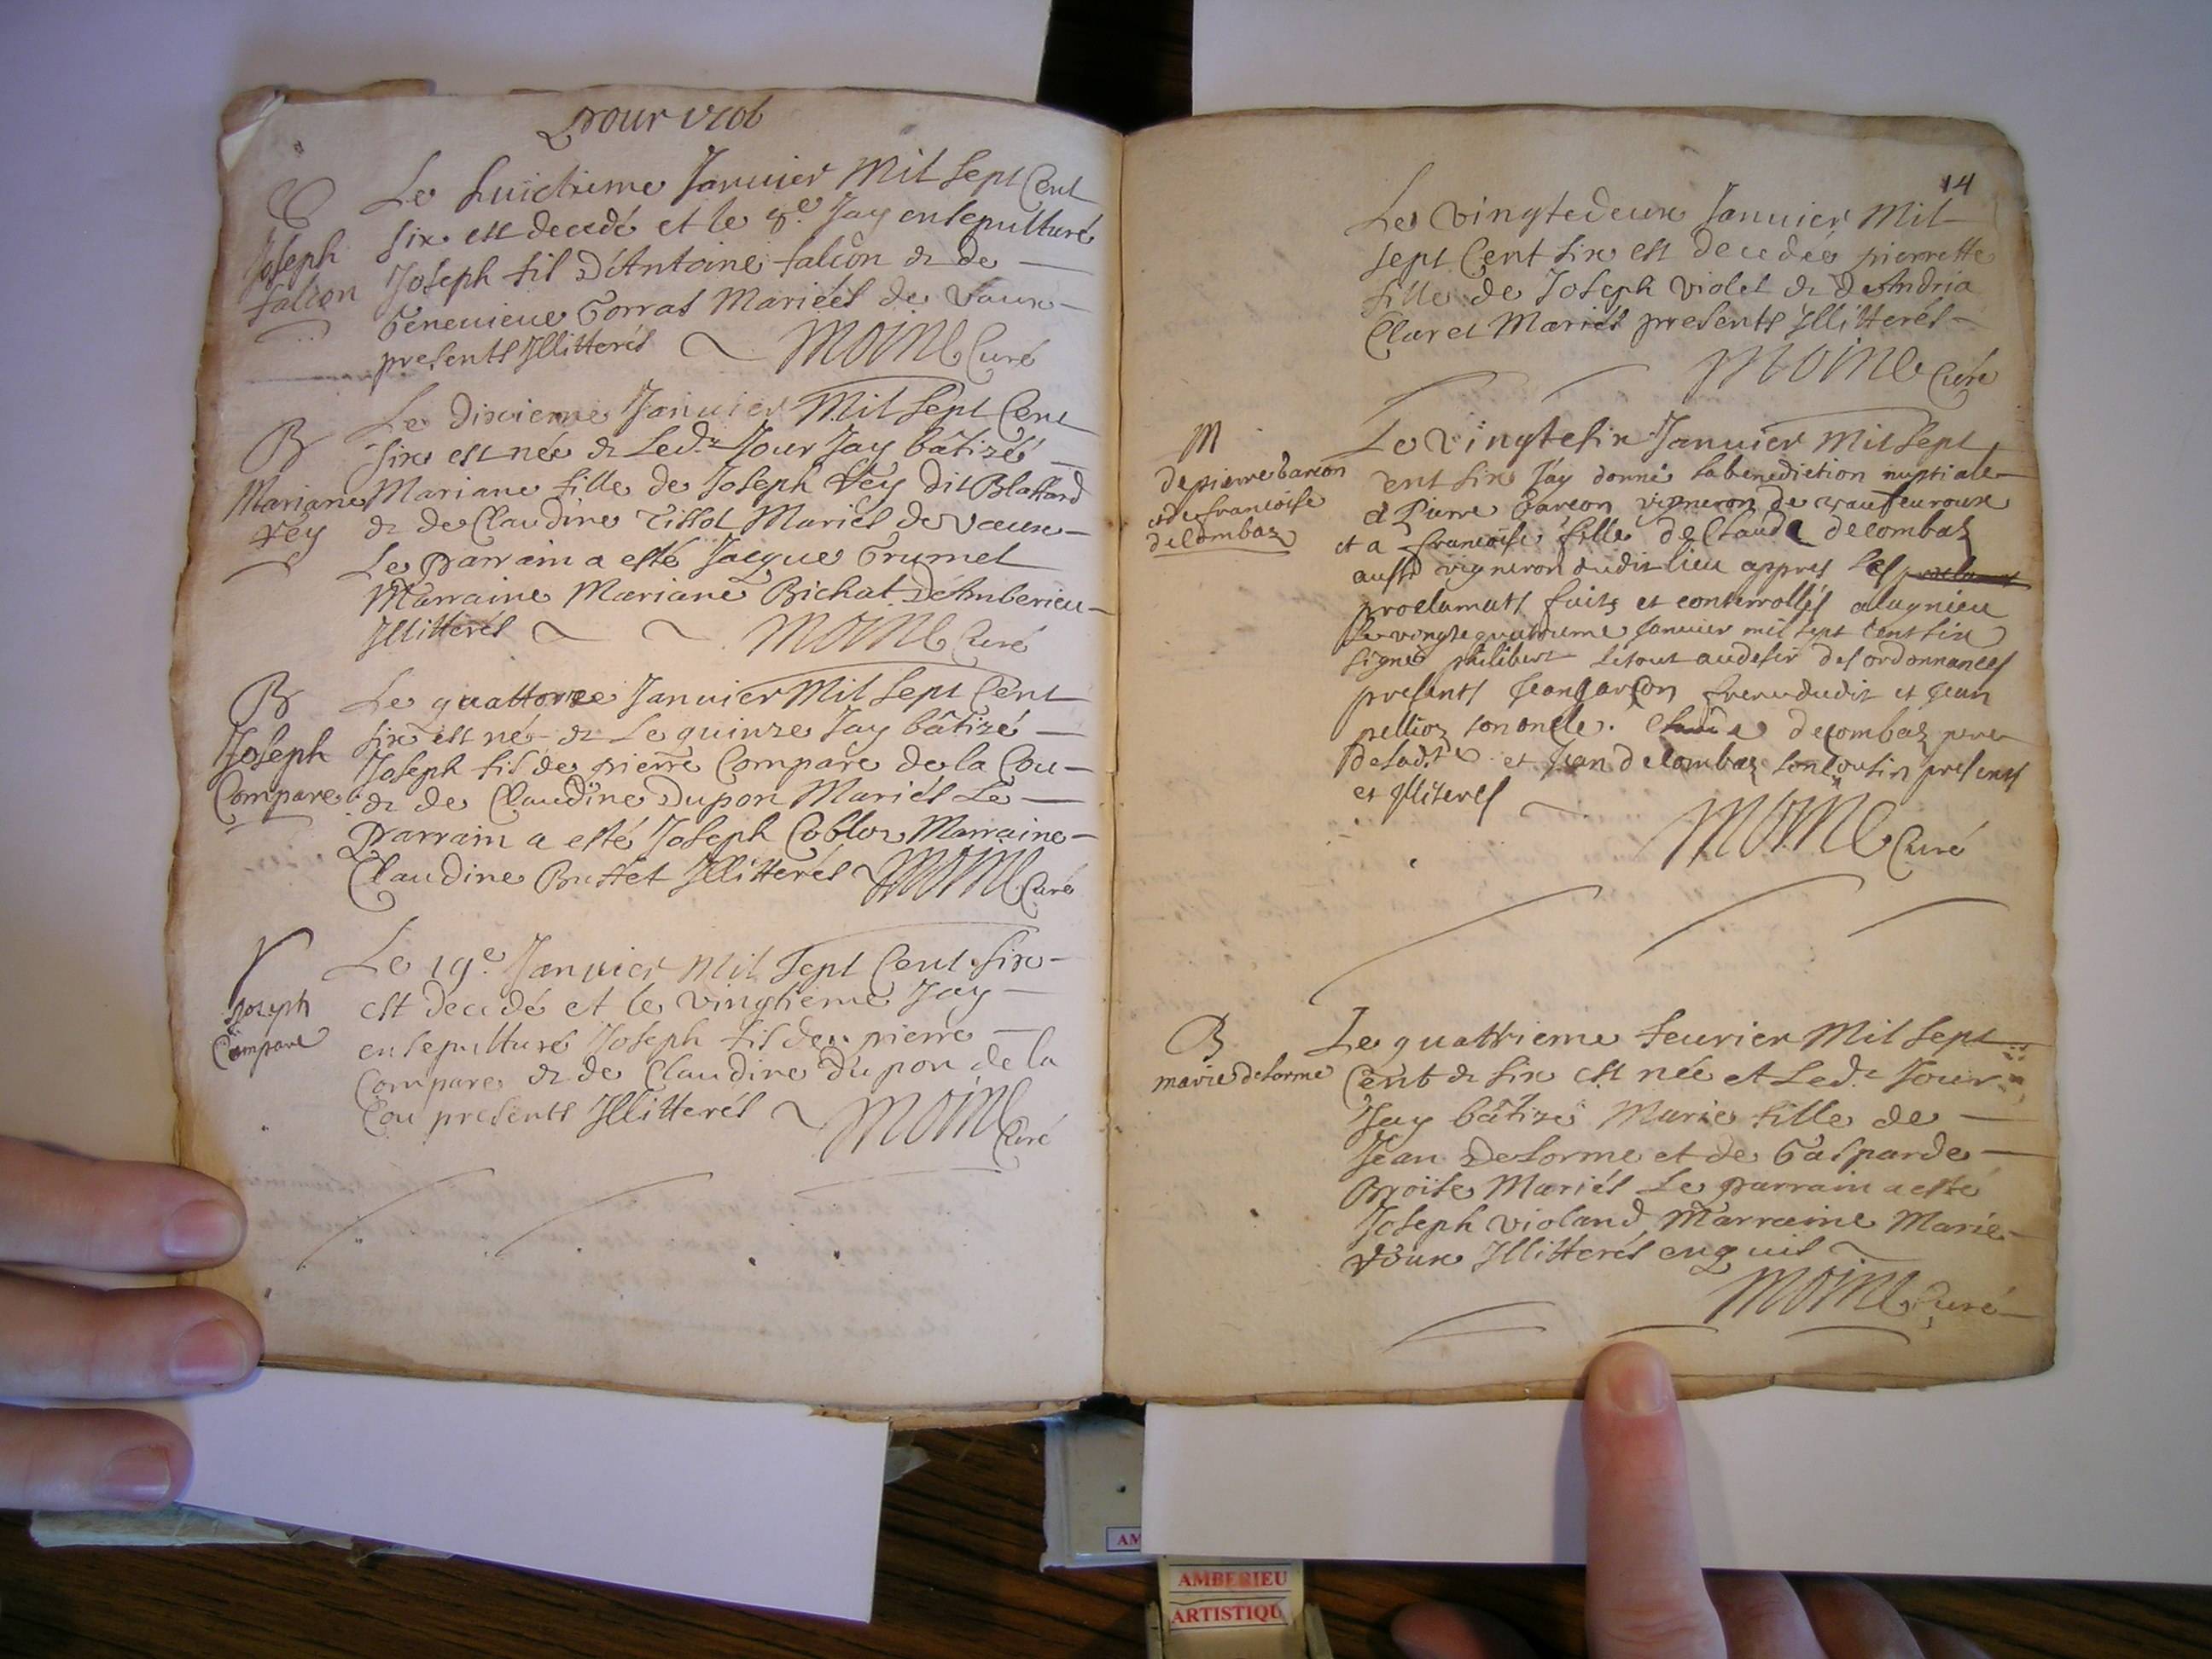 pour 1706
Le huictieme Janvier Mil Sept Cent
Six est decedé et le 9.e Jay ensepulturé
Joseph fils D'Antoine falcon & de
Genevieve Gorrat Mariéés de Vaux
presents Jllitterés Moine Curé
Joseph
falcon
Le dixieme Janvier Mil Sept Cent
Six est née & Led.t Jour Jay bâtizé
Mariane fille de Joseph Vey dit Blassard
& de Claudine Tissot Mariés de Vaux
Le Parrain a esté Jacque Grumet
Marraine Mariane Bichat D'Amberieu
Jllitterés Moine Curé
B
Mariane
Vey
Le quattorze Janvier Mil Sept Cent
Six est né & Le quinze Jay bâtizé
Joseph fils de pierre Compare de la Cou
& de Claudine Dupon Mariés Le
Parrain a esté Joseph Cobloz Marraine
Claudine Buffet Jllitterés Moine Curé
B
Joseph
Compare
Le 19.e Janvier Mil Sept Cent Six
est decedé et le vingtieme Jay
ensepulturé Joseph fils de pierre
Compare & de Claudine Dupon de la
Cou presents Jllitterés Moine Curé
Joseph
Compare
14
Le vingtedeux Janvier Mil
Sept Cent Six est decedée pierrette
fille de Joseph Violet & D'Andria
Claret Mariés presents Jllitterés
Moine Curé
M
de pierre Garcon
et de francoise
decombaz
Le Vingtesix Janvier Mil Sept
Cent Six Jay donné la benediction nuptiale
a Pierre Garcon vigneron de Vaufeuroux
et a francoise fille de Claude decombaz
aussy vigneron dudit lieu appres les
proclamats faits et conterrollés a lagnieu
le vingtequatrieme Janvier mil sept cent six
signé philibert le tout au desir des ordonnances
presents Jean garcon frere dudit et Jean
pellioz son oncle. Claude decombaz pere
de ladite et Jean decombaz son Cousin presents
et Jlliterés
Moine Curé
B
marie delorme
Le quattrieme fevrier Mil Sept
Cent & Six est née et Led.t Jour
Jay bâtizé Marie fille de
Jean Delorme et de Gasparde
Broïse Mariés Le parrain a esté
Joseph violand Marraine Marie
Voux Jllitterés enquis
Moine Curé
AM
AMBERIEU
ARTISTIQU